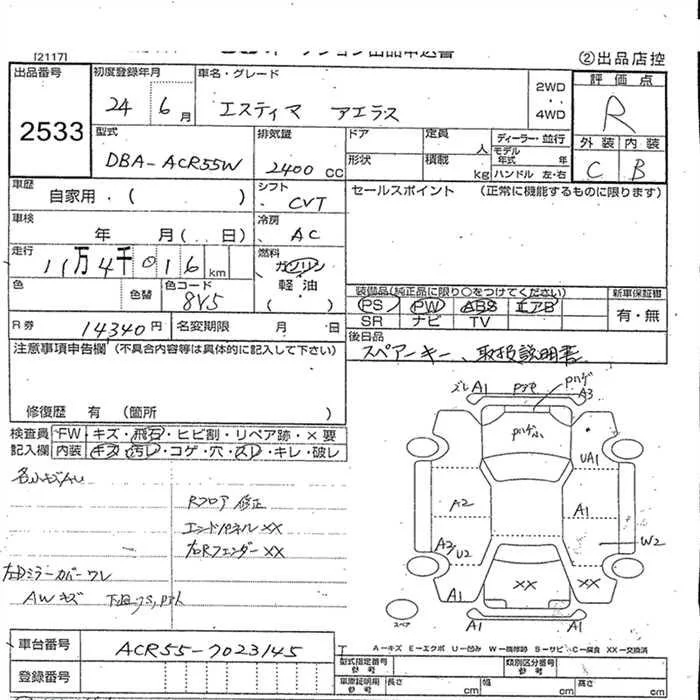 [2117]
②出品店控
出品番号
2533
初度登録年月
24 6月
車名・グレード
エスティマ アエラス
2WD
・・
4WD
評価点
R
外装 内装
C B
型式
DBA-ACR55W
排気量
2400 cc
ドア
定員
人
形状
積載
kg
ディーラー・並行
モデル年式 年
ハンドル 左・右
車歴
自家用・( )
シフト
CVT
セールスポイント (正常に機能するものに限ります)
車検
年 月(・・日)
冷房
AC
走行
11万4千016 km
燃料
ガソリン
軽油
( )
色
色替
色コード
8V5
装備品(純正品に限り○をつけてください)
PS PW ABS エアB
SR ナビ TV
新車保証書
有・無
R券
14340円
名変期限 月 日
後日品
スペアーキー、取扱説明書
注意事項申告欄(不具合内容等は具体的に記入して下さい)
修復歴 有(箇所 )
検査員記入欄
FW・キズ・飛石・ヒビ割・リペア跡・×要
内装・キズ・汚レ・コゲ・穴・スレ・キレ・破レ
Rフロア 修正
エンドパネル××
右Rフェンダー××
左Dミラーカバーワレ
AWキズ
ズレ A1
A3
UA1
A2
A1
A2
U2
W2
××
××
A1
A1
スペア
車台番号
ACR55-7023145
登録番号
A-キズ E-エクボ U-凹み W-補修跡 S-サビ C-腐食 XX-交換済
型式指定番号
参考
類別区分番号
参考
車庫証明用
参考
長さ cm 幅 cm 高さ cm